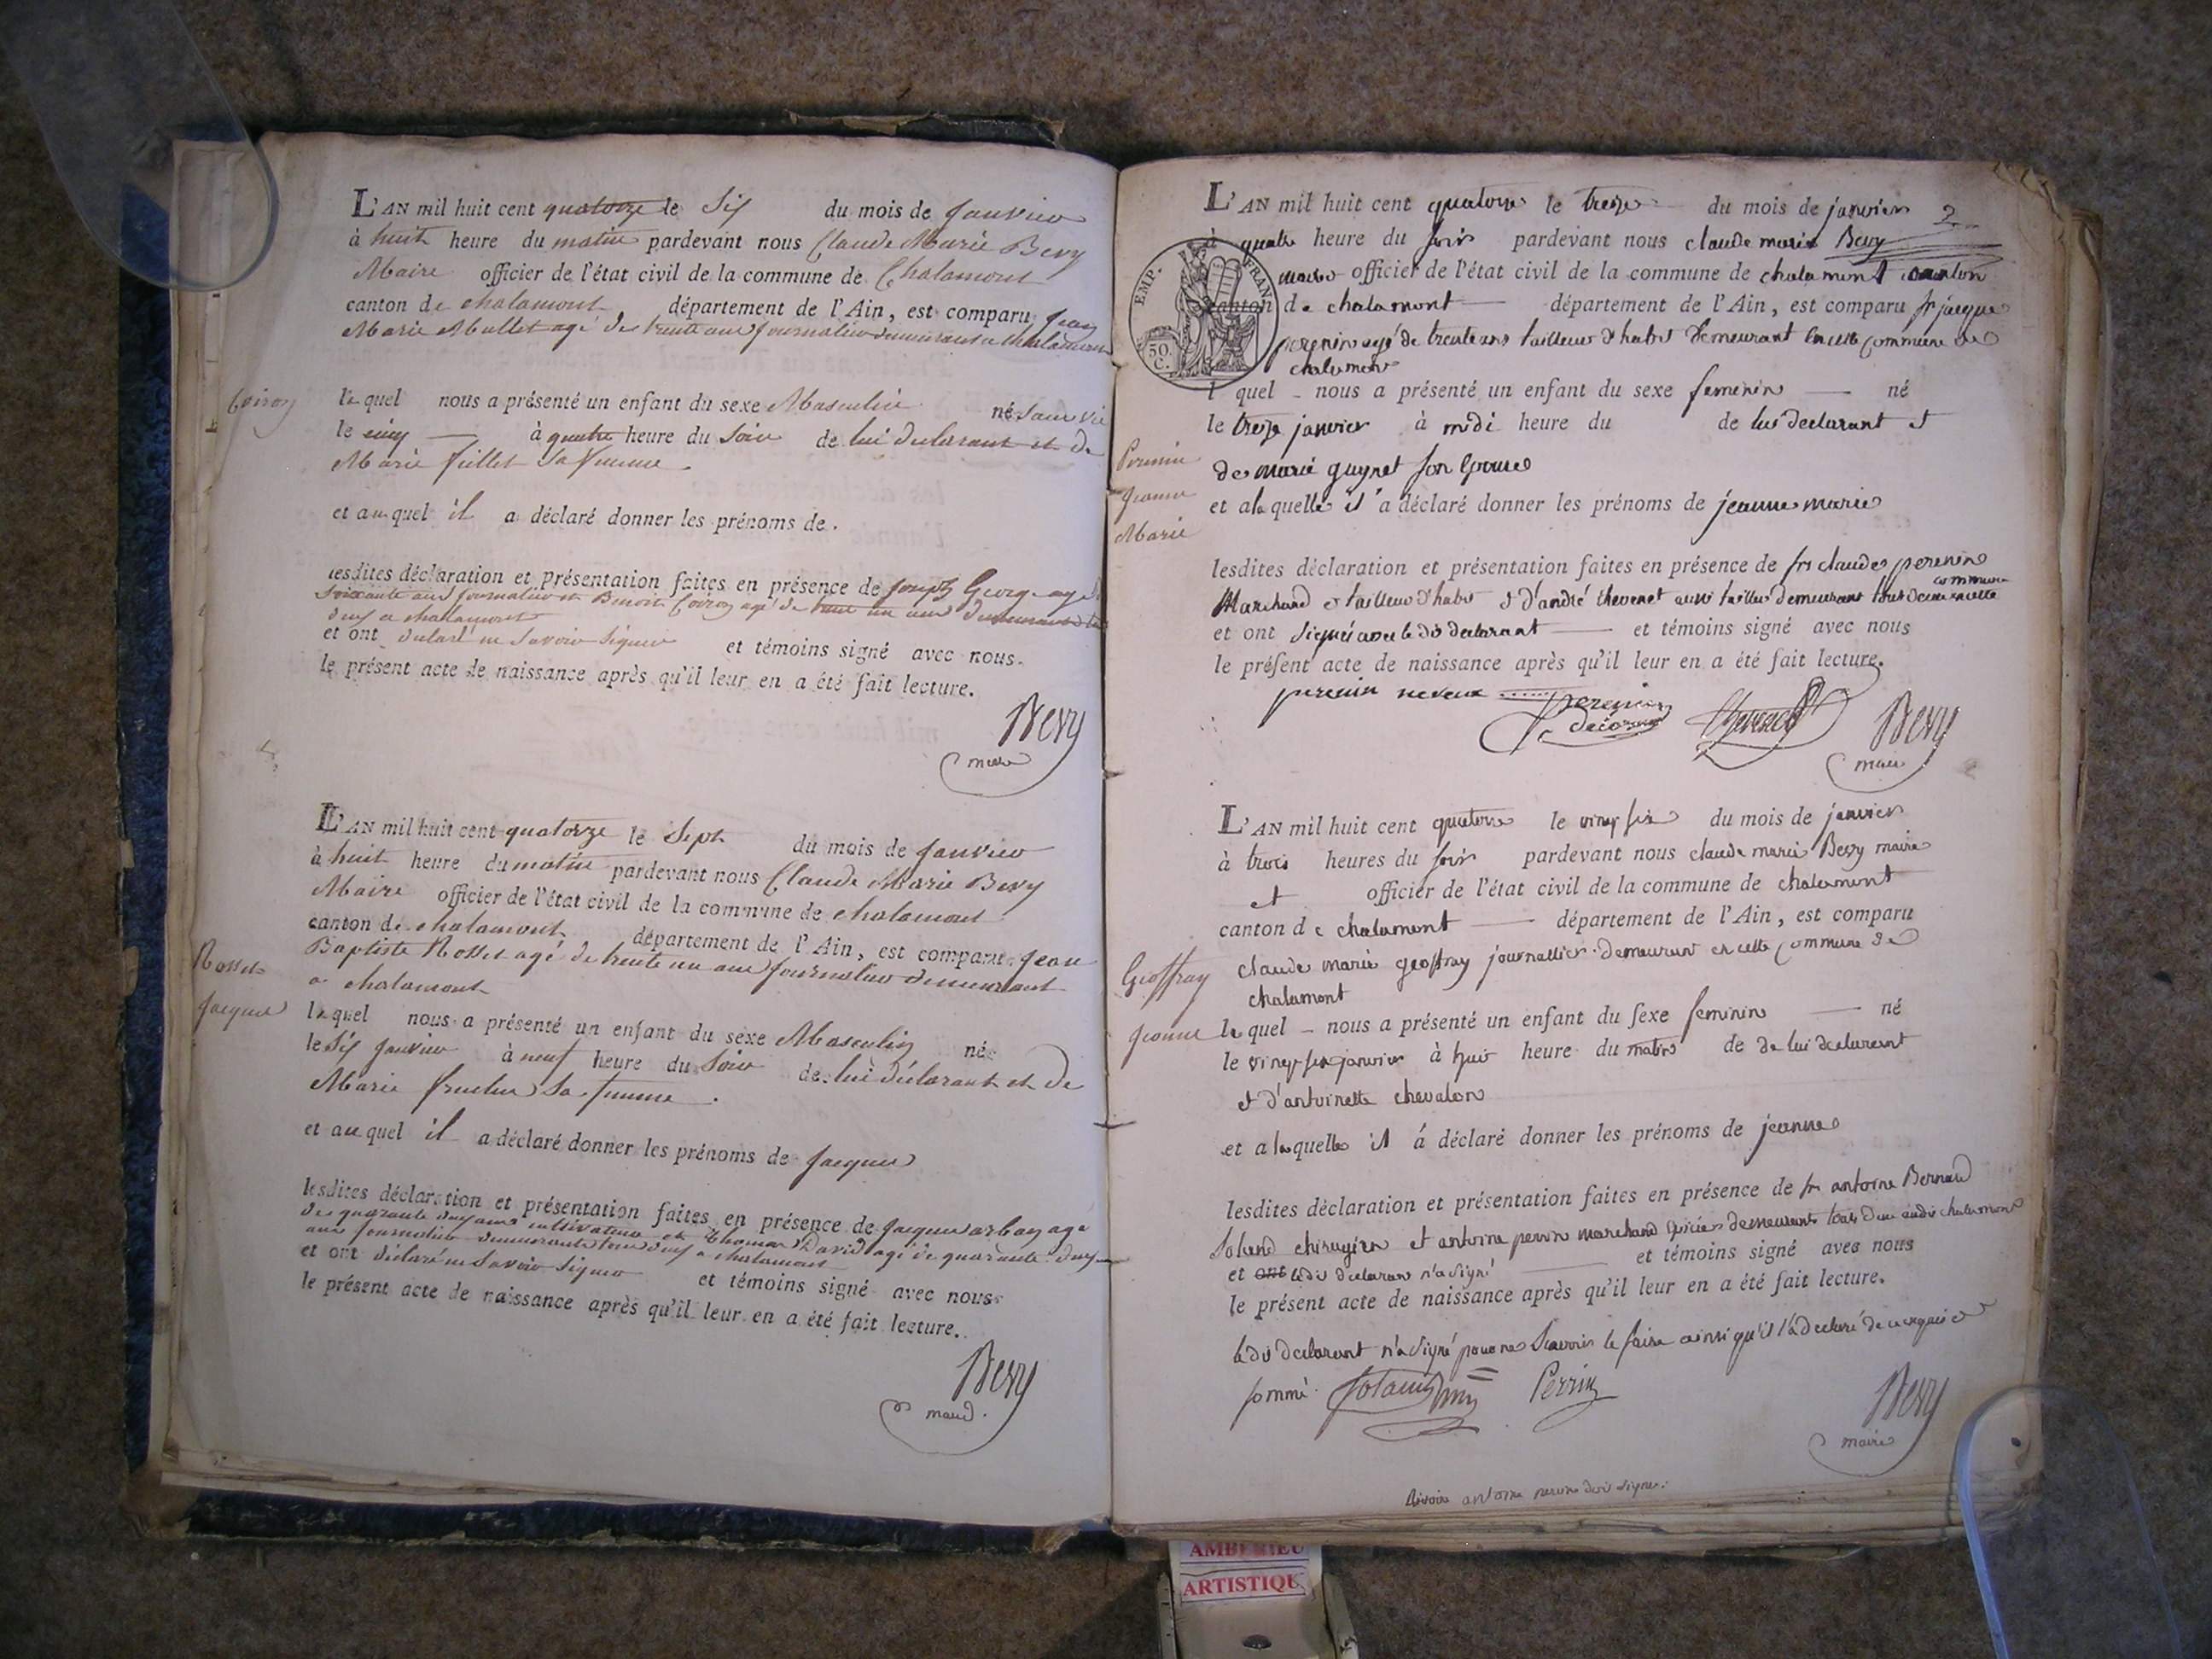 L'AN mil huit cent quatorze le Six du mois de Janvier
à huit heure du matin pardevant nous Claude Marie Bevy
Maire officier de l'état civil de la commune de Chalamont
canton de chalamont département de l'Ain, est comparu Jean
Marie Mallet agé de trente ans journalier demeurant a Chalamont
Coiron
lequel nous a présenté un enfant du sexe Masculin né sans vie
le cinq à quatre heure du Soir de lui declarant et de
Marie fillet Sa femme
et auquel il a déclaré donner les prénoms de
lesdites déclaration et présentation faites en présence de Joseph George agé de
Soixante ans journalier et Benoit Coiron agé de trente un ans demeurant tous
deux a chalamont
et ont declaré ne savoir Signer et témoins signé avec nous
le présent acte de naissance après qu'il leur en a été fait lecture.
Bevy
maire
L'AN mil huit cent quatorze le Sept du mois de Janvier
à huit heure du matin pardevant nous Claude Marie Bevy
Maire officier de l'état civil de la commune de chalamont
canton de chalamont département de l'Ain, est comparu Jean
Baptiste Rosset agé de trente un ans journalier demeurant
a chalamont
Rosset
Jacques
lequel nous a présenté un enfant du sexe Masculin né
le Six Janvier à neuf heure du Soir de lui déclarant et de
Marie Sa femme
et auquel il a déclaré donner les prénoms de Jacques
lesdites déclaration et présentation faites en présence de Jacques arbon agé
de quarante deux ans cultivateur et Thomas David agé de quarante deux
ans journalier demeurants tous deux a chalamont
et ont déclaré ne Savoir Signer et témoins signé avec nous
le présent acte de naissance après qu'il leur en a été fait lecture.
Bevy
maire
2
L'AN mil huit cent quatorze le treize du mois de janvier
à quatre heure du soir pardevant nous claude marie Bevy
maire officier de l'état civil de la commune de chalamont canton
canton de chalamont département de l'Ain, est comparu fr jacques
perenin agé de trente ans tailleur d'habit demeurant en cette commune de
chalamont
EMP. FRAN.
50 C.
l quel nous a présenté un enfant du sexe femenin né
le treize janvier à midi heure du de lui declarant et
de marie guynet son epouse
Perenin
Jeanne
Marie
et a laquelle il a déclaré donner les prénoms de jeanne marie
lesdites déclaration et présentation faites en présence de frs claude perenin
Marchand et tailleur d'habit et d'andré thevenet aussi tailleur demeurant tous deux en cette commune
et ont signé avec le dit declarant et témoins signé avec nous
le présent acte de naissance après qu'il leur en a été fait lecture.
perenin neveux perenin Thevenet Bevy
maire
L'AN mil huit cent quatorze le vingt six du mois de janvier
à trois heures du soir pardevant nous claude marie Bevy maire
et officier de l'état civil de la commune de chalamont
canton de chalamont département de l'Ain, est comparu
claude marie geoffray journallier demeurant en cette commune de
chalamont
Geoffray
Jeanne
le quel nous a présenté un enfant du sexe feminin né
le vingt six janvier à huit heure du matin de de lui declarant
et d'antoinette chevalon
et a laquelle il a déclaré donner les prénoms de jeanne
lesdites déclaration et présentation faites en présence de fr antoine Bernard
Soland chirugien et antoine perrin marchand epicier demeurants tous deux audit chalamont
et ont ledit declarant n'a signé et témoins signé avec nous
le présent acte de naissance après qu'il leur en a été fait lecture.
ledit declarant n'a signé pour ne scavoir le faire ainsi qu'il l'a declaré de ce requis et
sommé. Perrin Bevy
maire
antoine perrin doit signer
AMBERIEU
ARTISTIQUE